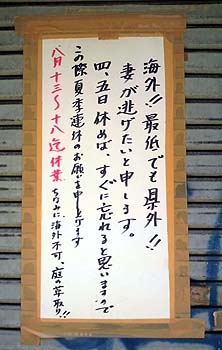 海外!!最低でも県外!!
妻が逃げたいと申します。
四、五日休めば、すぐに忘れると思いますので
この際夏季連休のお願いを申し上げます
八月十三〜十八迄休業
ちなみに海外不可、庭の草取り!!